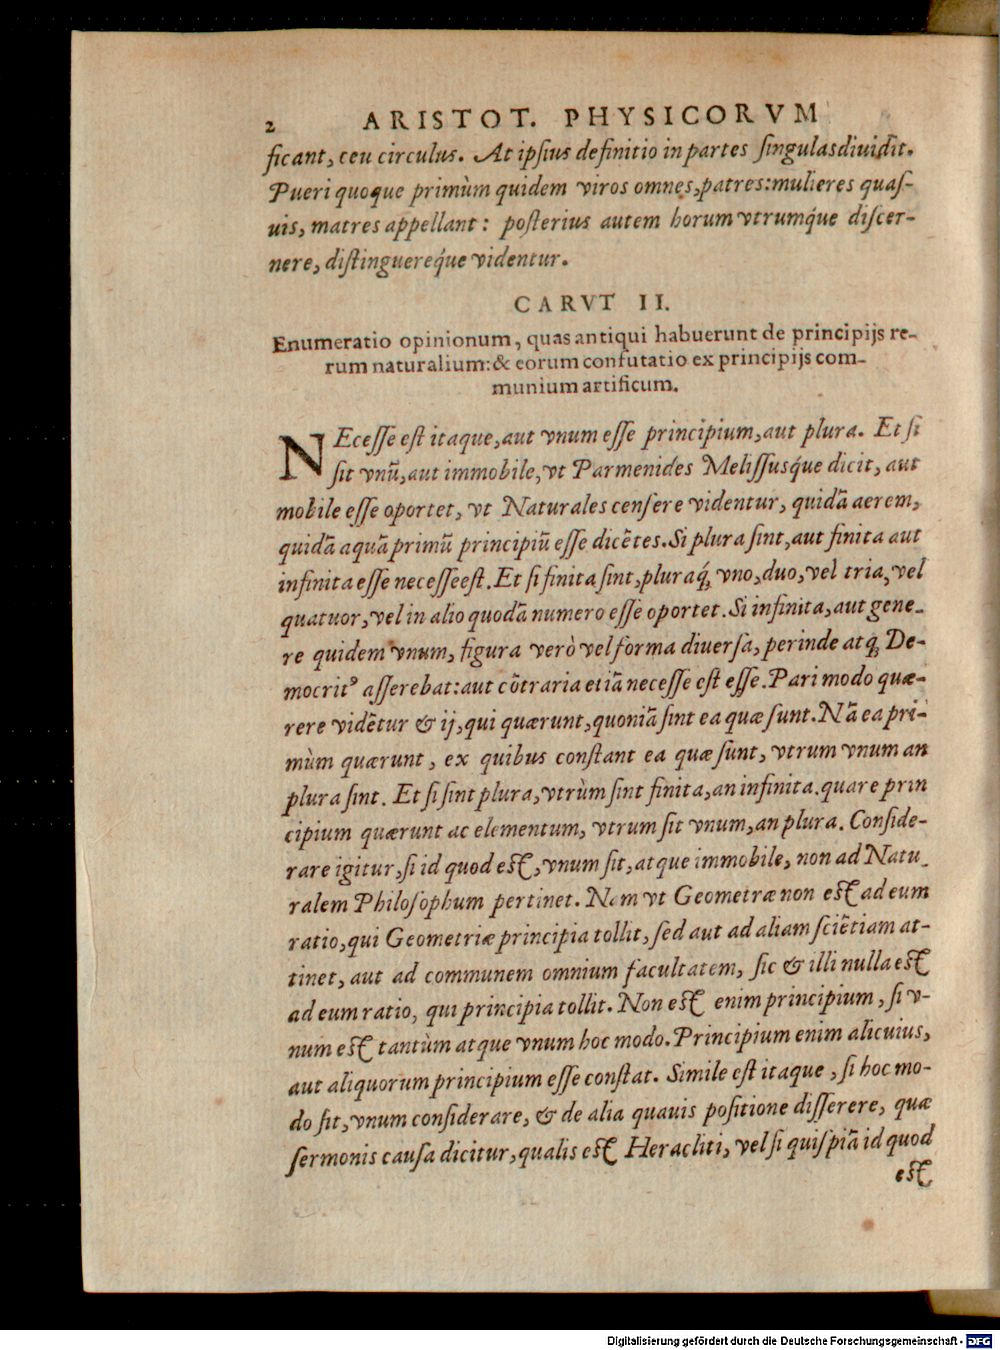 2 ARISTOT. PHYSICORVM
ficant, ceu circulus. At ipsius definitio in partes singulas diuidit.
Pueri quoque primùm quidem viros omnes, patres: mulieres quas-
uis, matres appellant: posterius autem horum vtrumq́ue discer-
nere, distinguereq́ue videntur.
CARVT II.
Enumeratio opinionum, quas antiqui habuerunt de principijs re-
rum naturalium: & eorum confutatio ex principijs com-
munium artificum.
NEcesse est itaque, aut vnum esse principium, aut plura. Et si
sit vnū, aut immobile, vt Parmenides Melissusq́ue dicit, aut
mobile esse oportet, vt Naturales censere videntur, quidā aerem,
quidā aquā primū principiū esse dicētes. Si plura sint, aut finita aut
infinita esse necesse est. Et si finita sint, pluraq́; vno, duo, vel tria, vel
quatuor, vel in alio quodā numero esse oportet. Si infinita, aut gene-
re quidem vnum, figura verò vel forma diuersa, perinde atq; De-
mocritꝰ asserebat: aut cōtraria etiā necesse est esse. Pari modo quæ-
rere vidētur & ij, qui quærunt, quoniā sint ea quæ sunt. Nā ea pri-
mùm quærunt, ex quibus constant ea quæ sunt, vtrum vnum an
plura sint. Et si sint plura, vtrùm sint finita, an infinita. quare prin
cipium quærunt ac elementum, vtrum sit vnum, an plura. Conside-
rare igitur, si id quod est, vnum sit, atque immobile, non ad Natu-
ralem Philosophum pertinet. Nam vt Geometræ non est ad eum
ratio, qui Geometriæ principia tollit, sed aut ad aliam sciētiam at-
tinet, aut ad communem omnium facultatem, sic & illi nulla est
ad eum ratio, qui principia tollit. Non est enim principium, si v-
num est tantùm atque vnum hoc modo. Principium enim alicuius,
aut aliquorum principium esse constat. Simile est itaque, si hoc mo-
do sit, vnum considerare, & de alia quauis positione disserere, quæ
sermonis causa dicitur, qualis est Heracliti, vel si quispiā id quod
est
Digitalisierung gefördert durch die Deutsche Forschungsgemeinschaft - DFG